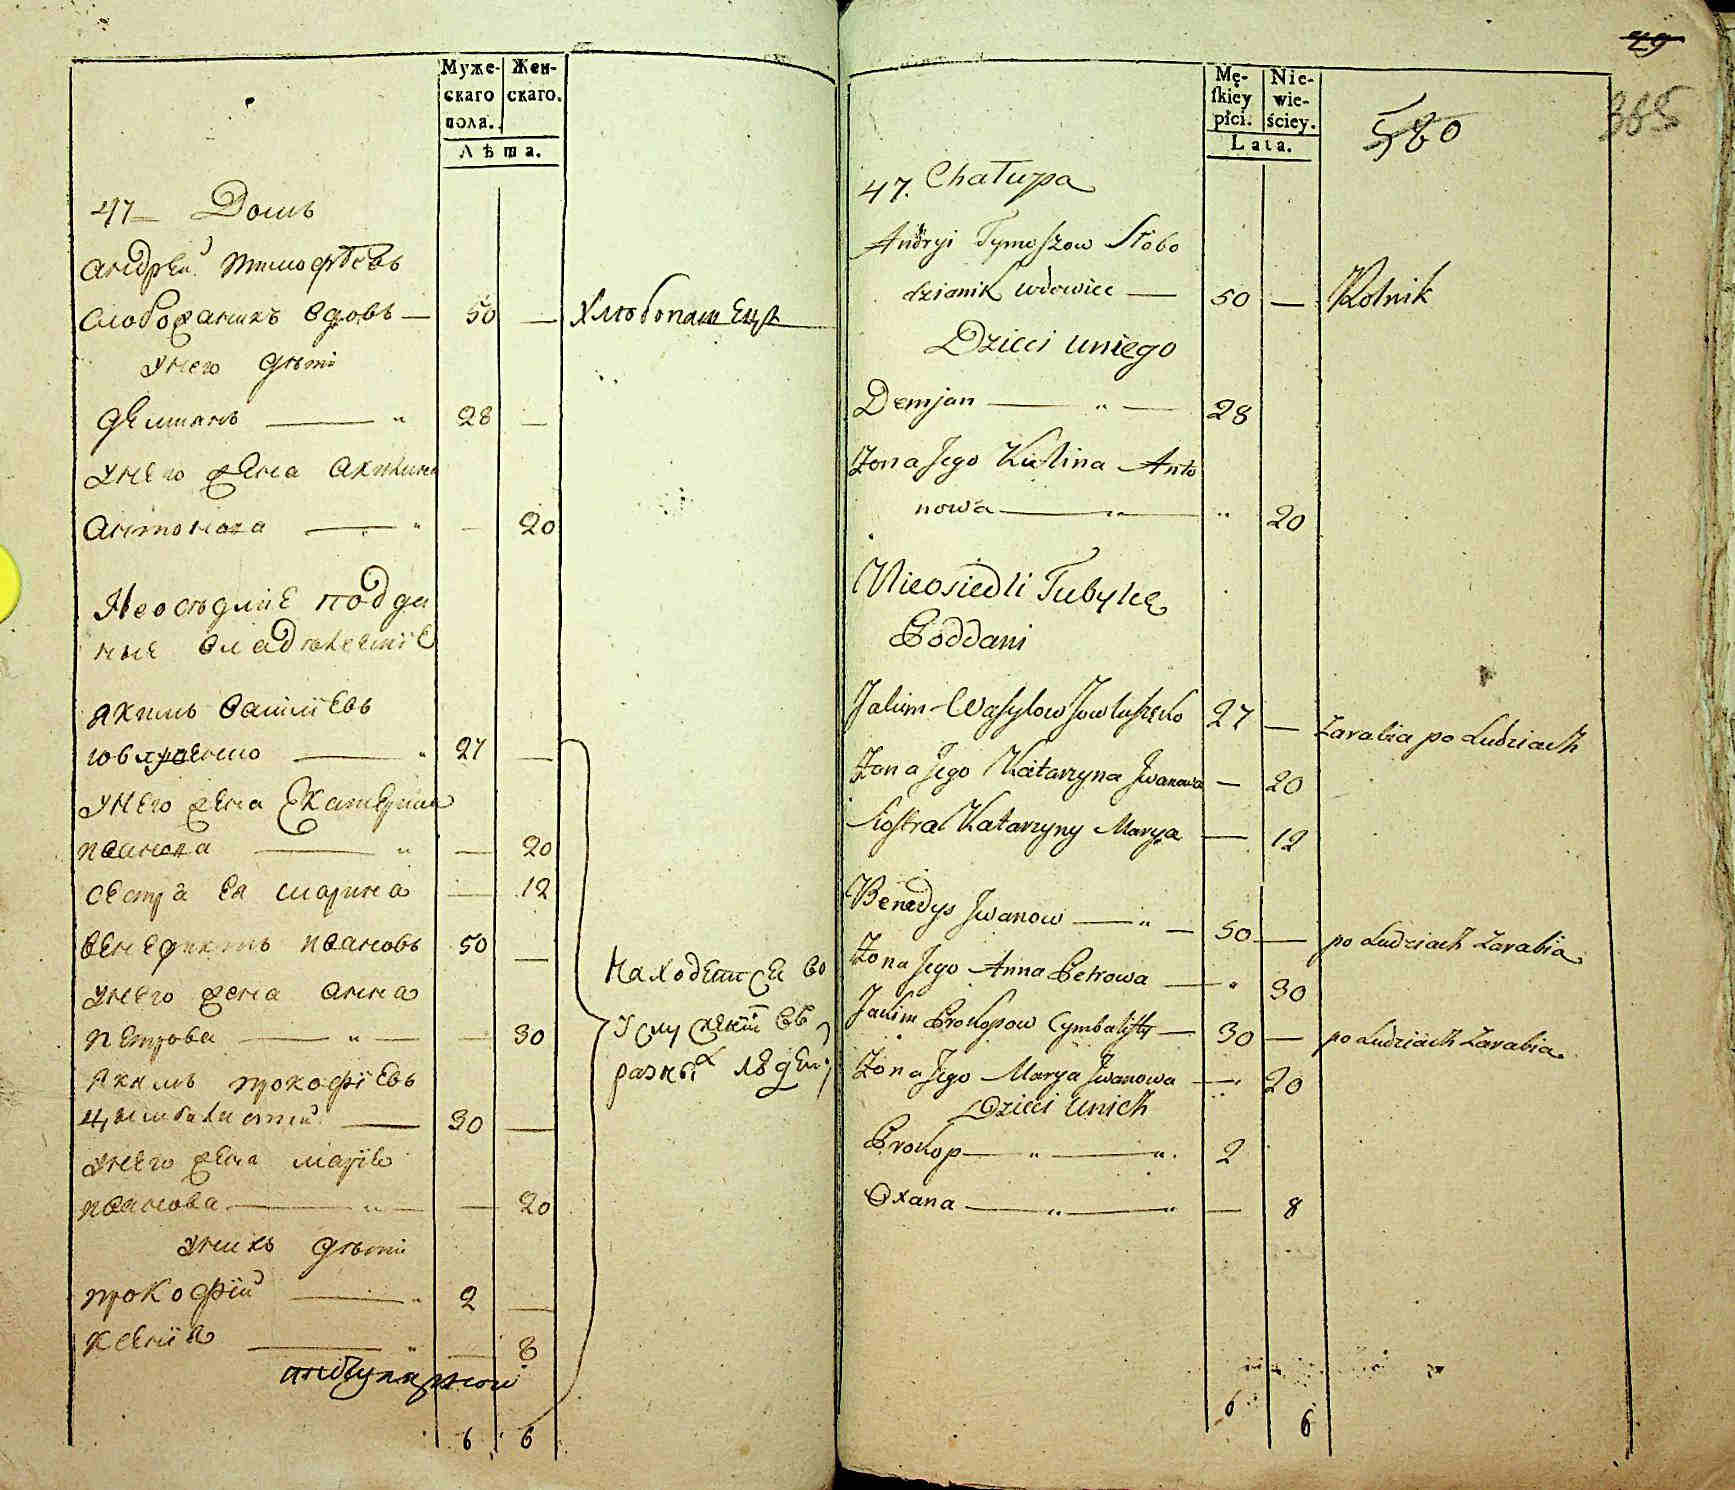 Муже-
скаго
пола.
Жен-
скаго.
Лѣта.
47 Домъ
Андрей Тимофѣевъ
Слобожаникъ вдовъ — 50 — Хлѣбопашецъ
у него дѣти
Демиянъ — 28 —
у него жена Акилина
Антонова — 20
Неосѣдлие подда
ные
Якимъ Василиевъ
27 —
у него жена Екатерина
Иванова — 20
Сестра ея Марина — 12
Венедиктъ Ивановъ 50 —
у него жена Анна
Петрова — 30
Якимъ Прокофиевъ
Цимбалистий — 30 —
у него жена Мария
Иванова — 20
у нихъ дѣти
Прокофий — 2 —
Ксения — 8
6 6
Находятся во
услужении въ
разных людей
29
385
580
Mę-
ſkiey
płci.
Nie-
wie-
ściey.
Lata.
47. Chałupa
Andryi Tymoszow Słobo
dzianik wdowiec — 50 — Rolnik
Dzieci uniego
Demjan — 28
Zona Jego Kulina Anto
nowa — 20
Nieosiedli Tubylcę
Poddani
Jakim Wasylow 27 — Zarabia po Ludziach
Zona Jego Katarzyna Jwanowa — 20
Siostra Katarzyny Marya — 12
Benedys Jwanow — 50 — po Ludziach Zarabia
Zona Jego Anna Petrowa — 30
Jakim Prokopow Cymbalisty — 30 — po Ludziach Zarabia
Zona Jego Marya Jwanowa — 20
Dzieci Unich
Prokop — 2
Oxana — 8
6 6